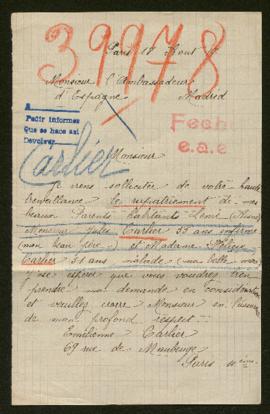 39978
Paris 18 Aout 17
Monsieur l'Ambassadeur
d'Espagne Madrid
A
Pedir informes
Que se hace asi
Devolver
Fecha
e.a.e
Cartier
Monsieur
Je viens solliciter de votre haute
bienveillance le rapatriement de mes
beaux Parents habitants
Monsieur Jules Cartier 59 ans infirme
(mon beau père) et Madame
Cartier 51 ans malade (ma belle mère)
J'ose espérer que vous voudrez bien
prendre ma demande en considération
et veuillez croire Monsieur en l'assurance
de mon profond respect
Emilienne Cartier
69 rue de Maubeuge
Paris 10ème